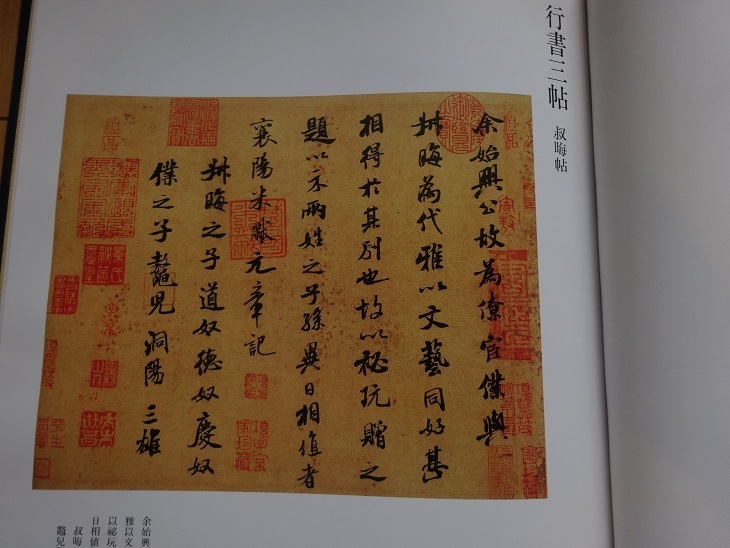 行書三帖
叔晦帖
余始興公故為僚宦僕與
叔晦為代雅以文藝同好甚
相得於其別也故以秘玩贈之
題以示兩姓之子孫異日相值者
襄陽米黻元章記
叔晦之子道奴德奴慶奴
僕之子鼇兒洞陽三雄
余始興
雅以文
以祕玩
日相値
叔晦
鼇兒